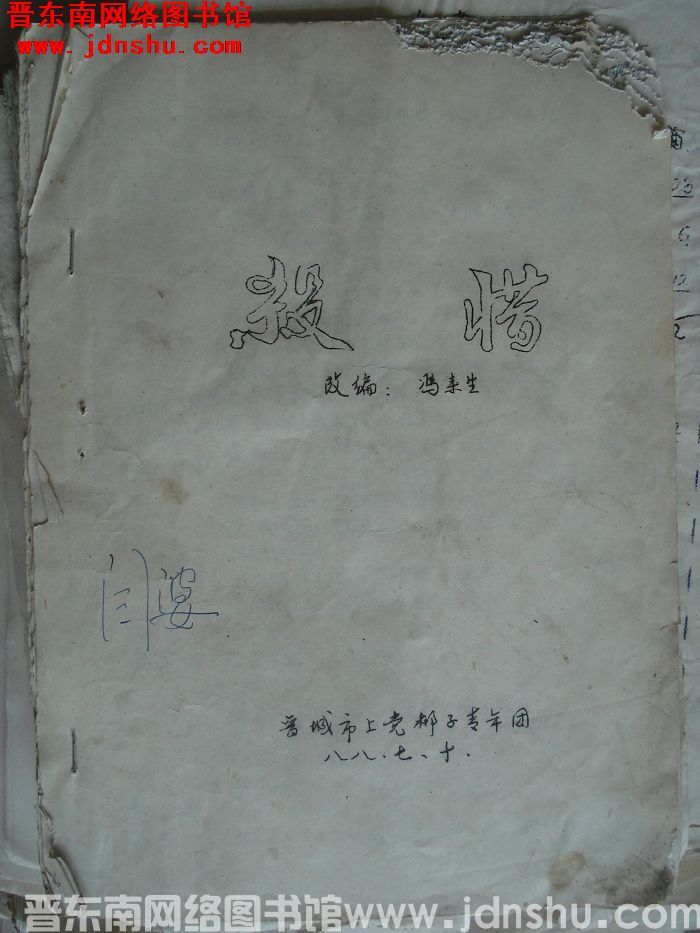 晋东南网络图书馆
www.jdnshu.com
杀惜
改编：冯来生
闫婆
晋城市上党梆子青年团
八八.七.十.
晋东南网络图书馆www.jdnshu.com